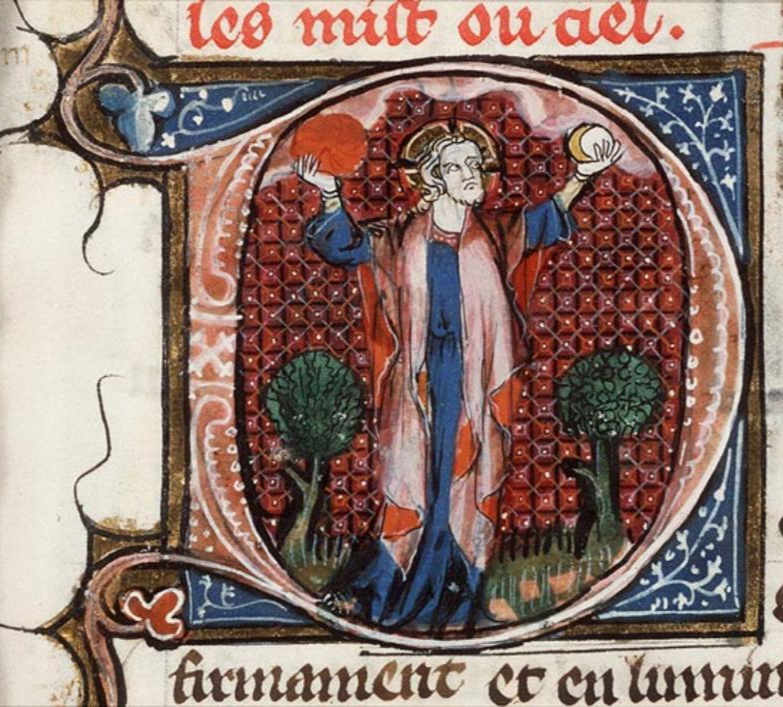 les mist ou ciel.
firmament et en lumin